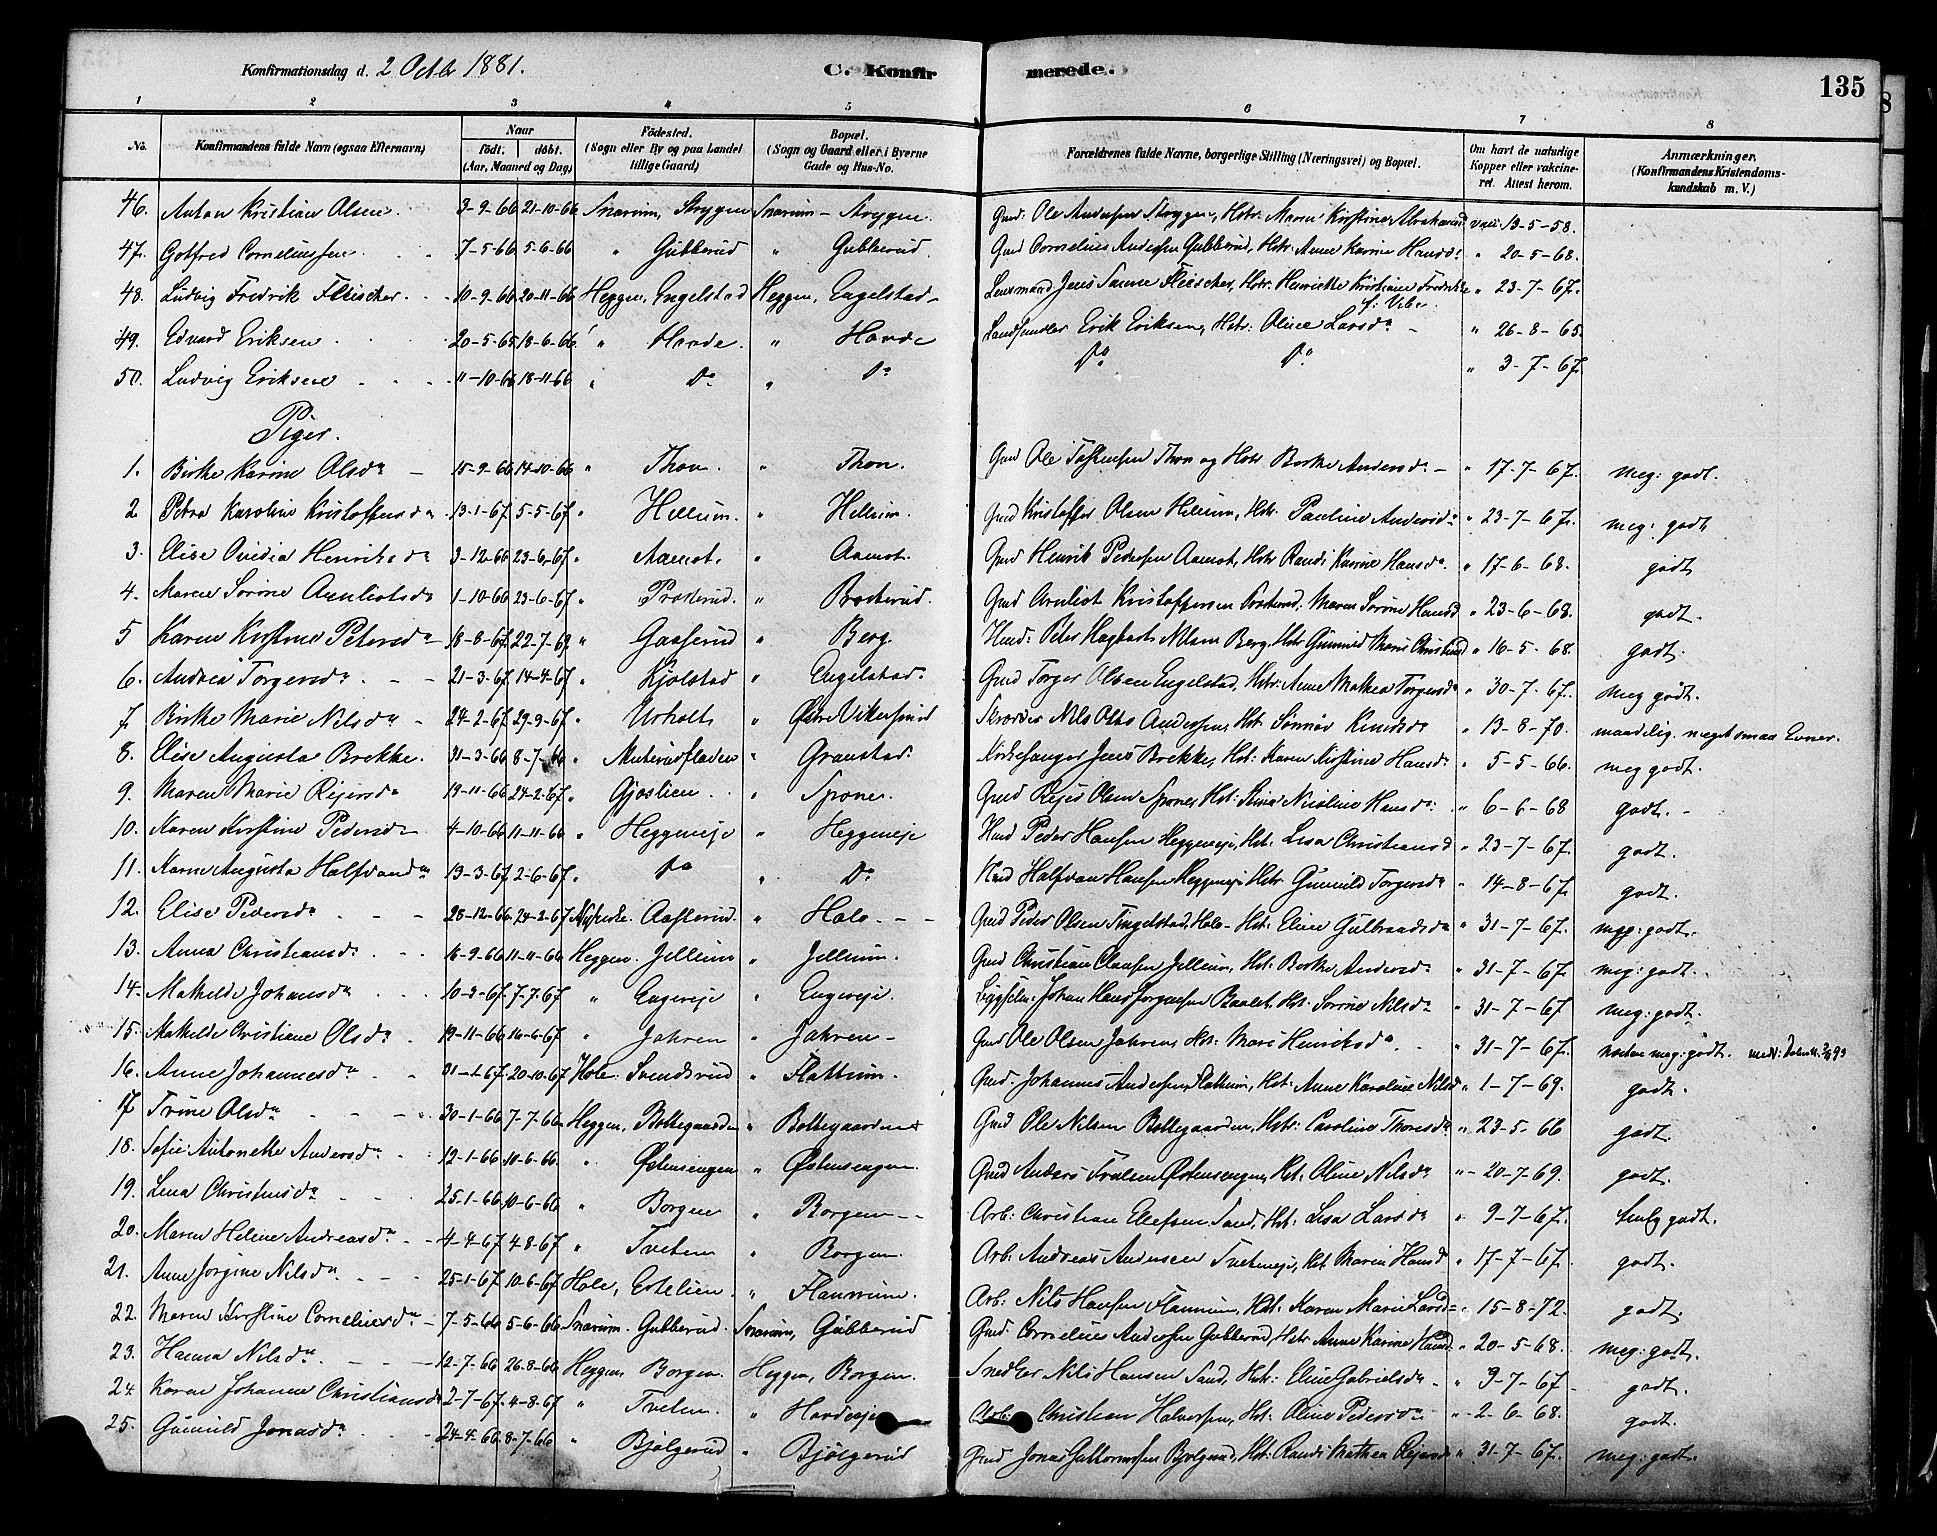 Konfirmationsdag d. 2 Octbr 1881.
C. Konfirmerede.
135
1 2 3 4 5 6 7 8
No. Konfirmandens fulde Navn (ogsaa Efternavn) Naar født. døbt. (Aar, Maaned og Dag) Fødested. (Sogn eller By og paa Landet tillige Gaard) Bopæl. (Sogn og Gaard eller i Byerne Gade og Hus-No. Forældrenes fulde Navne, borgerlige Stilling (Næringsvei) og Bopæl. Om havt de naturlige Kopper eller vakcineret. Attest herom. Anmærkninger. (Konfirmandens Kristendomskundskab m. V.)
46. Anton Kristian Olsen. 3-9-66 21-10-66 Snarum, Strygen Snarum - Strygen. Gmd. Ole Andersen Strygen, Hstr: Maren Kirstine Abrahamsd vac: 13-5-58.
47. Gotfred Corneliussen 7-5-66 5-6-66 " Gubberud " Gubberud. Gmd Cornelius Andersen Gubberud, Hstr: Anne Karine Hansd. " 20-5-68.
48. Ludvig Fredrik Fleischer 10-9-66 20-11-66 Heggen, Engelstad Heggen, Engelstad Lensmand Jens Sanne Fleischer, Hstr: Henriette Kristiane Fredrikke f: Vibe. " 23-7-67.
49. Edvard Eriksen 20-5-65 18-6-66 " Hovde. " Hovde Landhandler Erik Eriksen, Hstr: Oline Larsda - " 26-8-65.
50. Ludvig Eriksen 11-10-66 18-11-66 " Do " Do Do Do " 3-7-67.
Piger.
1. Birthe Karine Olsda 15-9-66 14-10-66 " Thon. " Thon. Gmd Ole Thon og Hstr Berthe Andersda - " 17-7-67. meg: godt.
2. Petra Karoline Kristoffersda 13-1-67 5-5-67 " Hellum. " Hellum. Gmd Kristoffer Olsen Hellum, Hstr: Pauline Andersda " 23-7-67. meg: godt
3. Elise Ovidia Henriksda 3-12-66 23-6-67 " Aamot. " Aamot. Gmd Henrik Pedersen Aamot, Hstr Randi Karine Hansda. " 17-6-68. godt
4. Maren Sørine Arnliotsda 1-10-66 23-6-67 " " Gmd Arnliot Kristoffersen Maren Sørine Hansd " 23-6-68. godt.
5 Karen Kirstine Petersda 18-8-67 22-7-67 " Gaaserud " Berg. Hmd: Peter Hagbart Nilsen Berg, Hstr Gunnild Marie Christiansd " 16-5-68. godt.
6. Andrea Torgersda. 21-3-67 14-4-67 " Kjølstad " Engelstad. Gmd Torger Olsen Engelstad, Hstr: Anne Mathea Torgersda " 30-7-67. meg godt.
7. Birthe Marie Nilsda 24-2-67 29-9-67 " Urholt " Østre Vikersund Skræder Nils Otto Andersen, Hstr Knudsda " 13-8-70. maadelig. meget smaa Evner.
8. Elise Augusta Brekke. 31-3-66 8-7-66 " " Granstad. Kirkesanger Jens Brekke, Hst: Karen Kirstine Hansda " 5-5-66. meg godt.
9. Maren Marie Rejersda 19-11-66 24-2-67 " Gjøslien " Spone. Gmd Rejer Olsen Spone, Hst: Nicoline Hansda: " 6-6-68 godt. -
10. Karen Kirstine Pedersda 4-10-66 11-11-66 " Heggeneje " Heggeneje Hmd Peder Hansen Heggeneje, Hst: Lisa Christiansd " 23-7-67. godt.
11. Karen Augusta Halfvandda 19-3-67 2-6-67 " Do " Do Hmd Halfvan Hansen Heggeneje Hstr Gunnild Torgersda " 14-8-67. godt.
12. Elise Pedersda 28-12-66 24-2-67 Nykirke. " Holo - - Gmd Peder Olsen Tingelstad, Holo - Hst: Eline Gulbrandsda " 31-7-67. meg: godt.
13. Anna Christiansda. 16-9-66 11-11-66 Heggen. Jellum " Jellum. Gmd Christian Clausen Jellum, Hst: Berthe Andersda " 31-7-67. meg: godt.
14. Mathilde Johansda 10-3-67 7-7-67 " Engeneje " Engeneje. Johan Hans Jørgensen Hst: Sørine Nilsda " 31-7-67 meg: godt.
15. Mathilde Christiane Olsda 19-11-66 16-6-67 " Jahren " Jahren - Gmd Ole Olsen Jahren, Hst: Mari Henriksda. " 31-7-67. næsten meg: godt.
16. Anne Johannesda 31-1-67. 20-10-67 Hole. Svendsrud " Flattum. Gmd. Johannes Andersen Flattum, Hst: Anne Karoline Nilsd " 1-7-69. godt.
17 Trine Olsda 30-1-66 7-7-66 Heggen, Bottegaarden " Bottegaarden Gmd Ole Nilsen Bottegaarden, Hstr: Caroline Thoresda " 23-5-66 godt.
18. Sofie Antonette Andersda 12-1-66 10-6-66. " Østensengen " Østensengen. Gmd Anders Østensengen, Hst: Oline Nilsda " 20-7-69. godt.
19. Lena Christiansda 25-1-66 10-6-66 " Borgen " Borgen - - Arb: Christian Ellefsen Sand, Hst: Lisa Larsda " 9-7-67. temlg godt.
20. Maren Helene Andreasda. 4-4-67 4-8-67 " Tveten " Borgen. Arb: Andreas Andersen Tveteneje, Hst Maria Hansd " 17-7-67. godt.
21. Anne Jørgine Nilsda. 25-1-67. 10-6-67 Hole, " Flannum. Arb: Nils Hansen Flannum, Hst: Karen Marie Larsda " 15-8-72. godt.
22. Maren Kirstine Corneliusda 7-5-66 5-6-66 Snarum. Gubberud. Snarum, Gubberud Gmd. Cornelius Andersen Gubberud, Hstr Anne Karine Hansd. " 20-5-68. meg: godt.
23. Hanna Nilsda. 12-7-66 26-8-66 Heggen, Borgen. Heggen, Borgen. Snedker Nils Hansen Sand, Hst: Eline Gabrielsda. " 9-7-67 godt.
24. Karen Johanne Christiansda 2-7-67. 4-8-67 " Tveten. " Hovdeeje Arb: Christian Halvorsen, Hst: Oline Pedersda " 2-6-68. godt.
25. Gunnild Jonasda. 24-4-66 8-7-66 " Bjølgerud " Bjølgerud Gmd Jonas Guttormsen Bjølgerud, Hst: Randi Mathea Rejersda " 31-7-67. meg: godt.